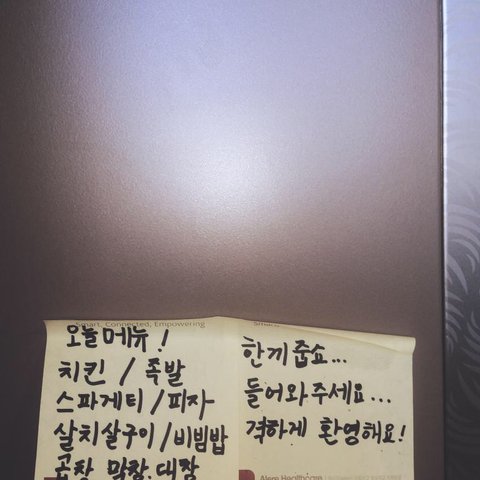 Smart, Connected, Empowering
오늘 메뉴!
치킨 / 족발
스파게티 / 피자
살치살구이 / 비빔밥
곱창. 막창. 대창
Smart
한끼줍쇼...
들어와주세요...
격하게 환영해요!
Alere Healthcare